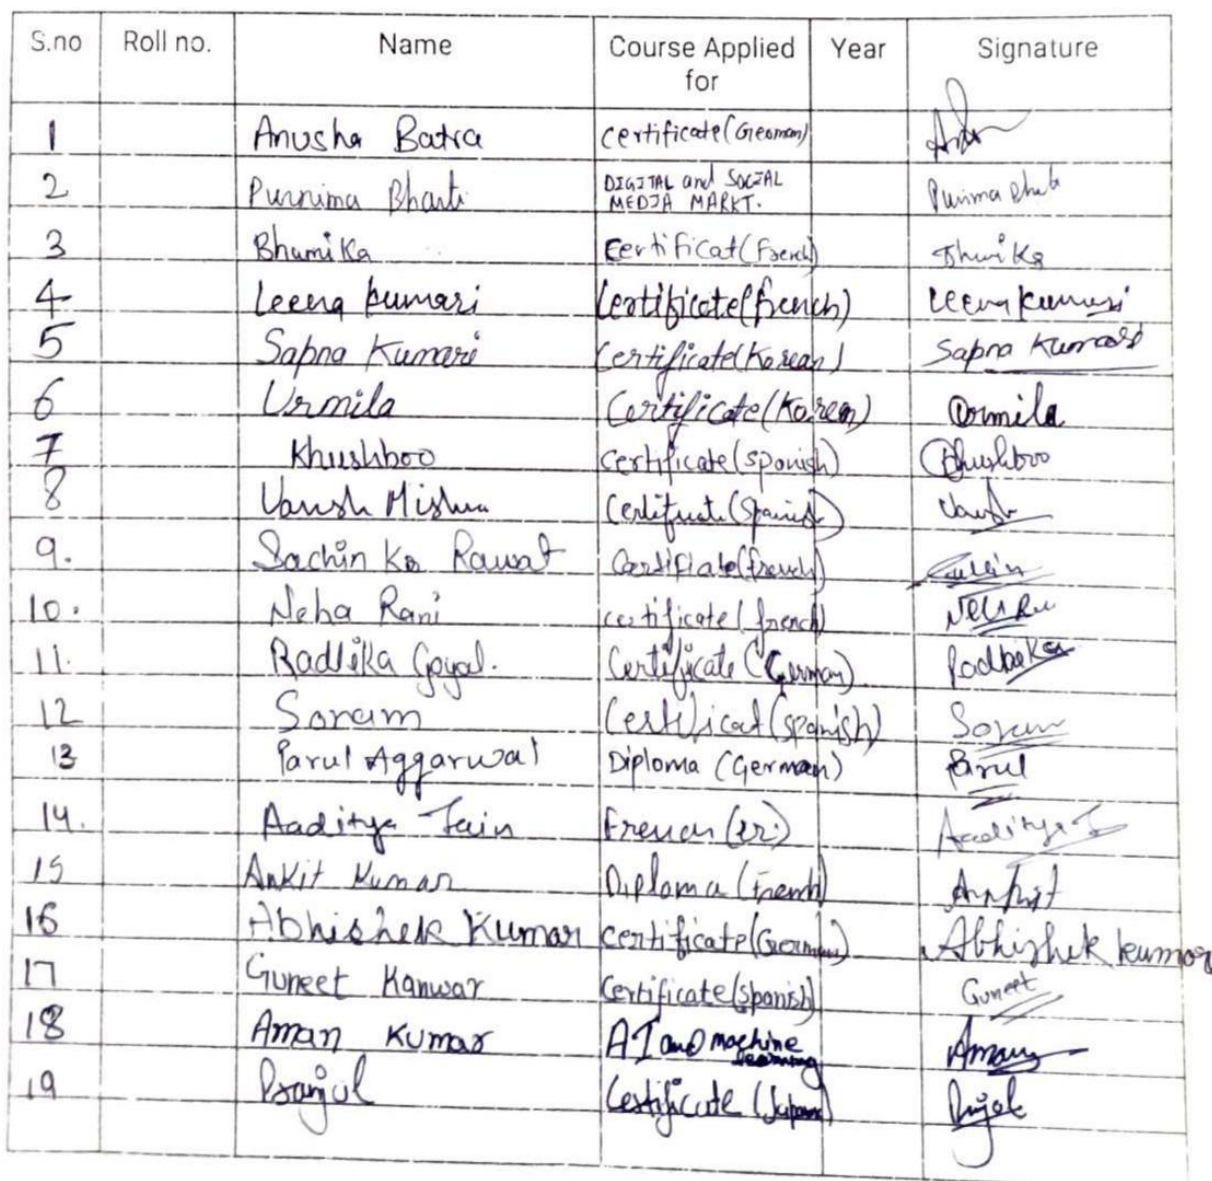 S.no Roll no. Name Course Applied for Year Signature
1 Anusha Batra Certificate (German)
2 Purnima Bharti DIGITAL and SOCIAL MEDIA MARKT. Purnima Bharti
3 Bhumika Certificat (French) Bhumika
4 Leena kumari Certificate (french) Leena kumari
5 Sapna Kumari Certificate (Korean) Sapna Kumari
6 Urmila Certificate (Korean) Urmila
7 Khushboo Certificate (Spanish) Khushboo
8 Vansh Mishra Certificate (Spanish) Vansh
9. Sachin Kr Rawat Certificate (french) Sachin
10. Neha Rani certificate (french)
11. Radhika Goyal. Certificate (German). Radhika
12 Sonam Certificat (spanish) Sonam
13 Parul Aggarwal Diploma (German) Parul
14. Aaditya Jain French Aaditya J
15 Ankit Kumar Diploma (French) Ankit
16 Abhishek Kumar certificate (German) Abhishek kumar
17 Guneet Kanwar Certificate (Spanish) Guneet
18 Aman Kumar AI and machine learning Aman
19 Pranjul Certificate (Japanese)